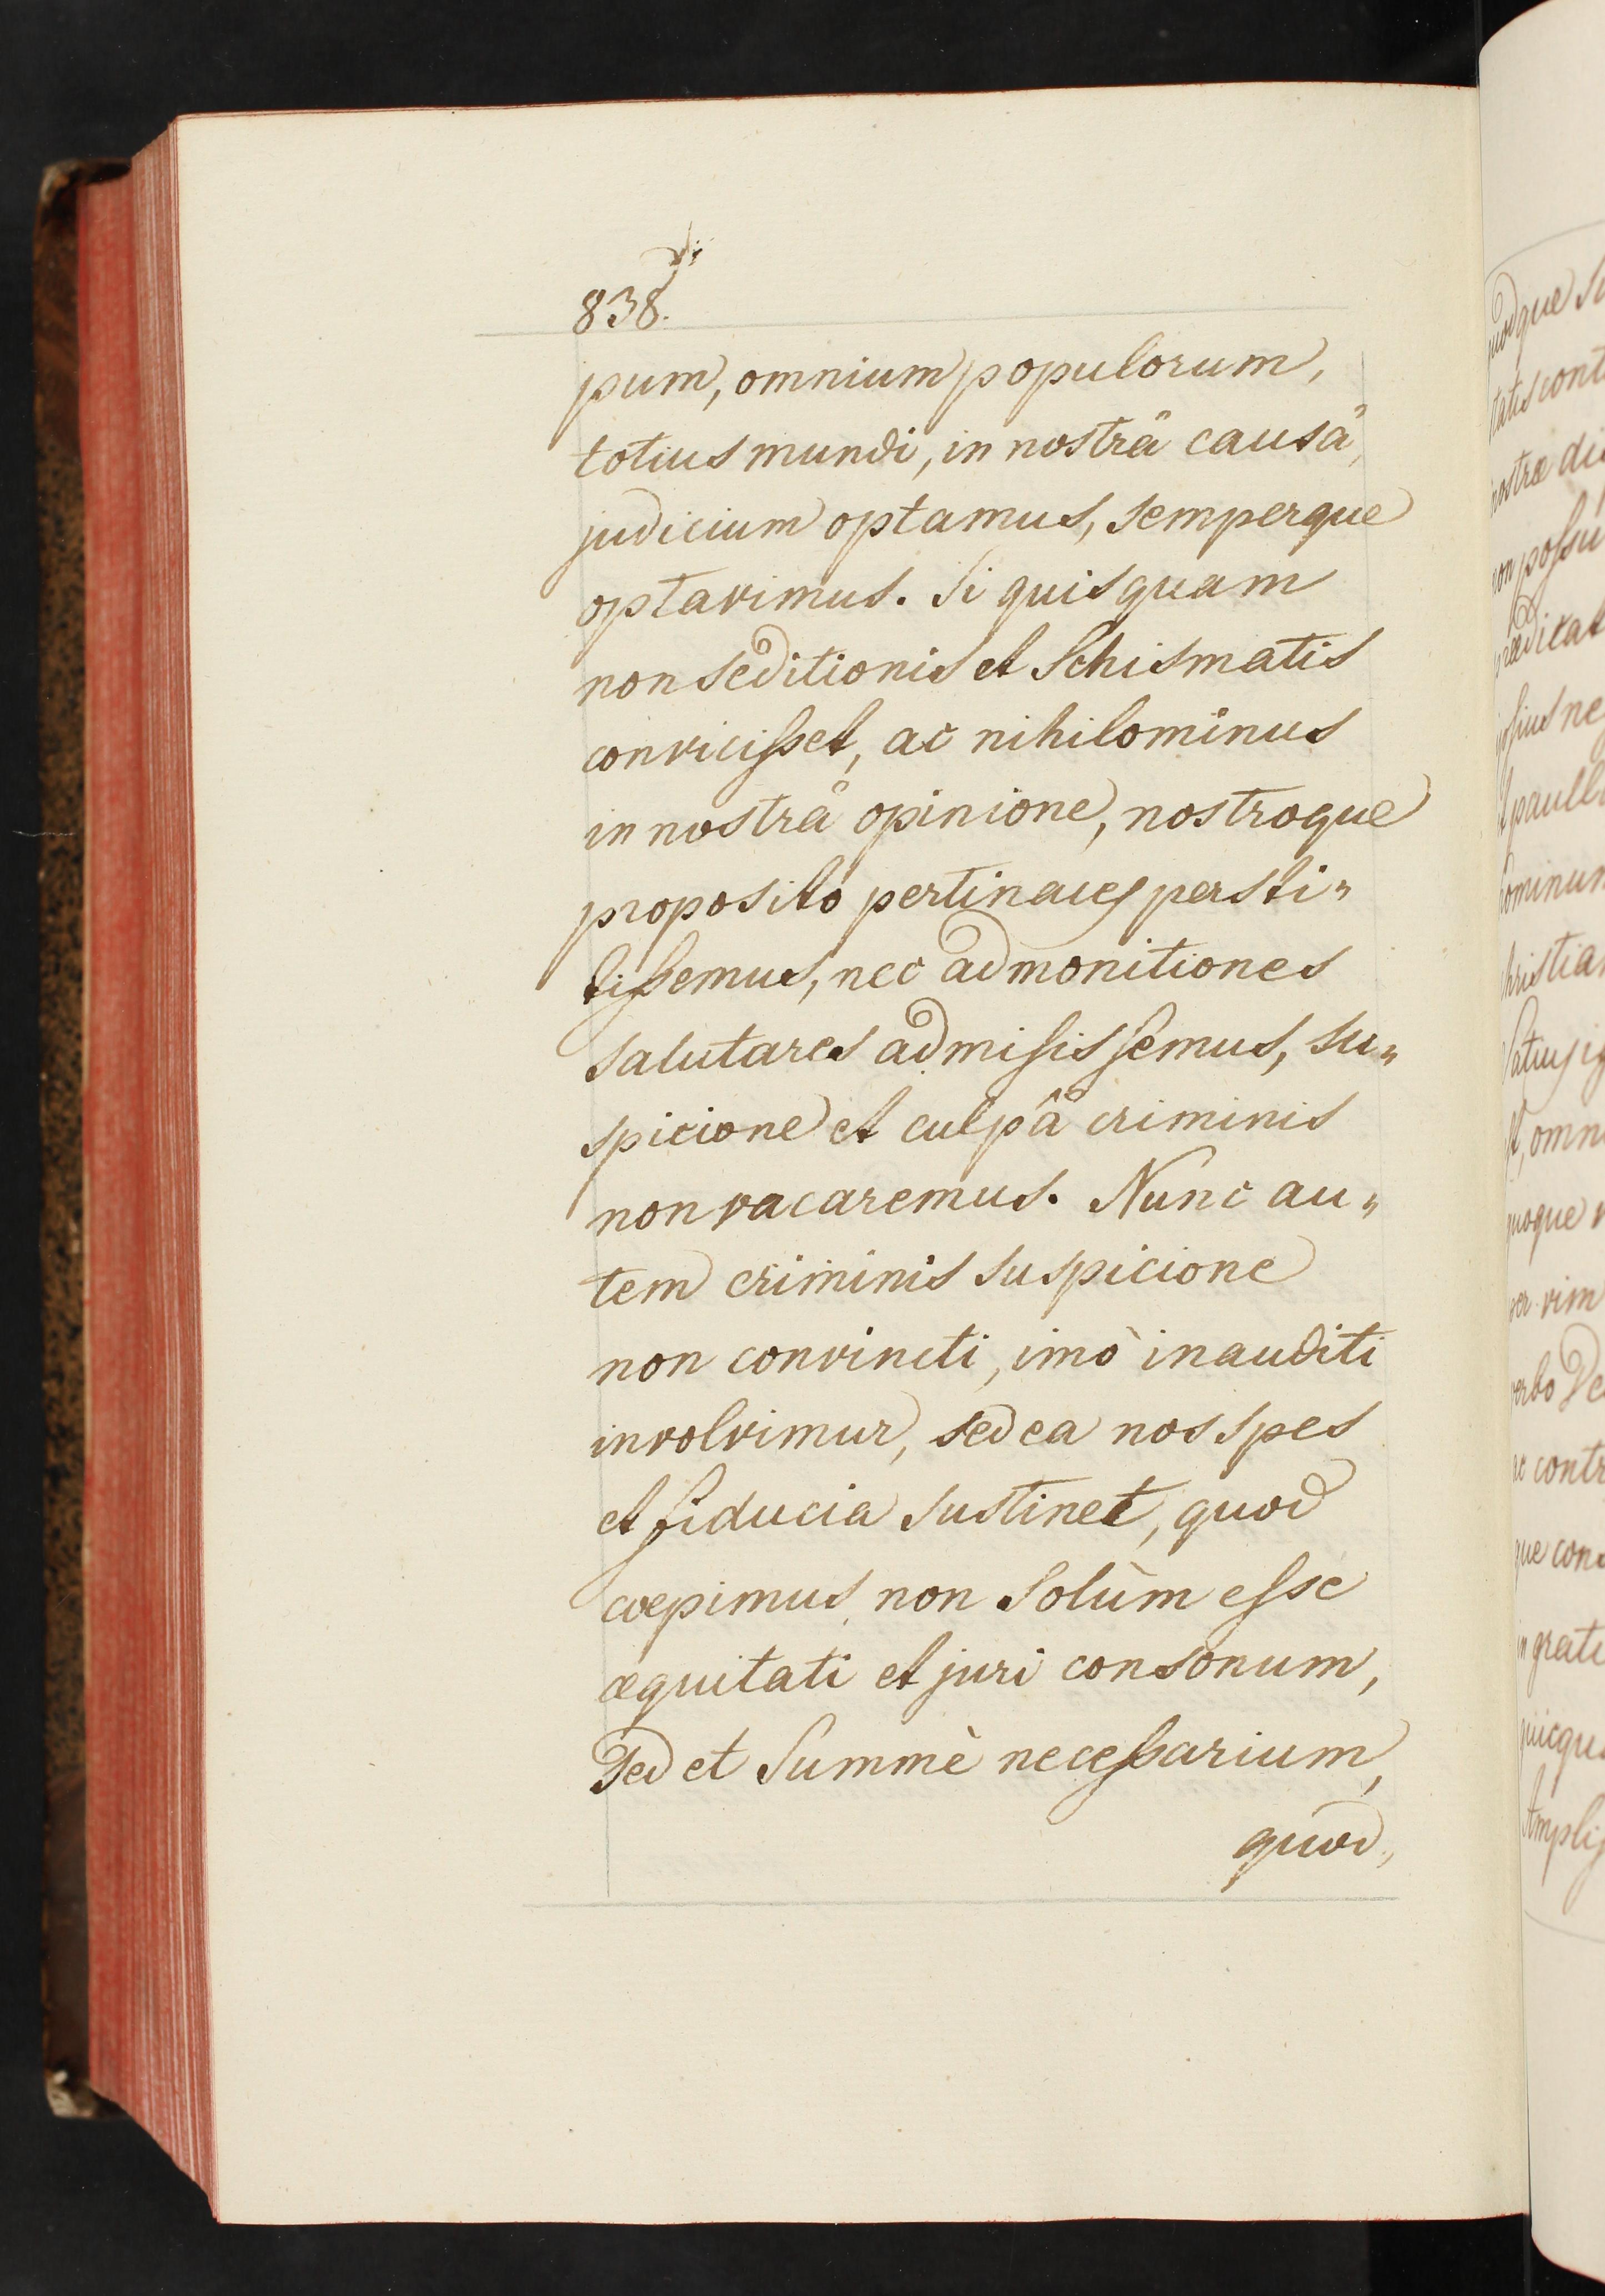 838.
pum, omnium populorum,
totius mundi, in nostrâ causâ,
judicium optamus, semperque
optavimus. Si quisquam
non seditionis et Schismatis
convicisset, ac nihilominus
in nostrâ opinione, nostroque
proposito pertinaces persti„
tissemus, nec admonitiones
salutares admisissemus, su„
spicione et culpâ criminis
non vacaremus. Nunc au„
tem criminis suspicione
non convincti, imò inauditi
involvimur, sed ea nos spes
et fiducia sustinet, quod
cœpimus, non Solùm esse
æquitati et juri consonum,
Sed et Summè necessarium,
quod„
nostræ
omn
quoque
vim
verbo De
ac contr
que cons